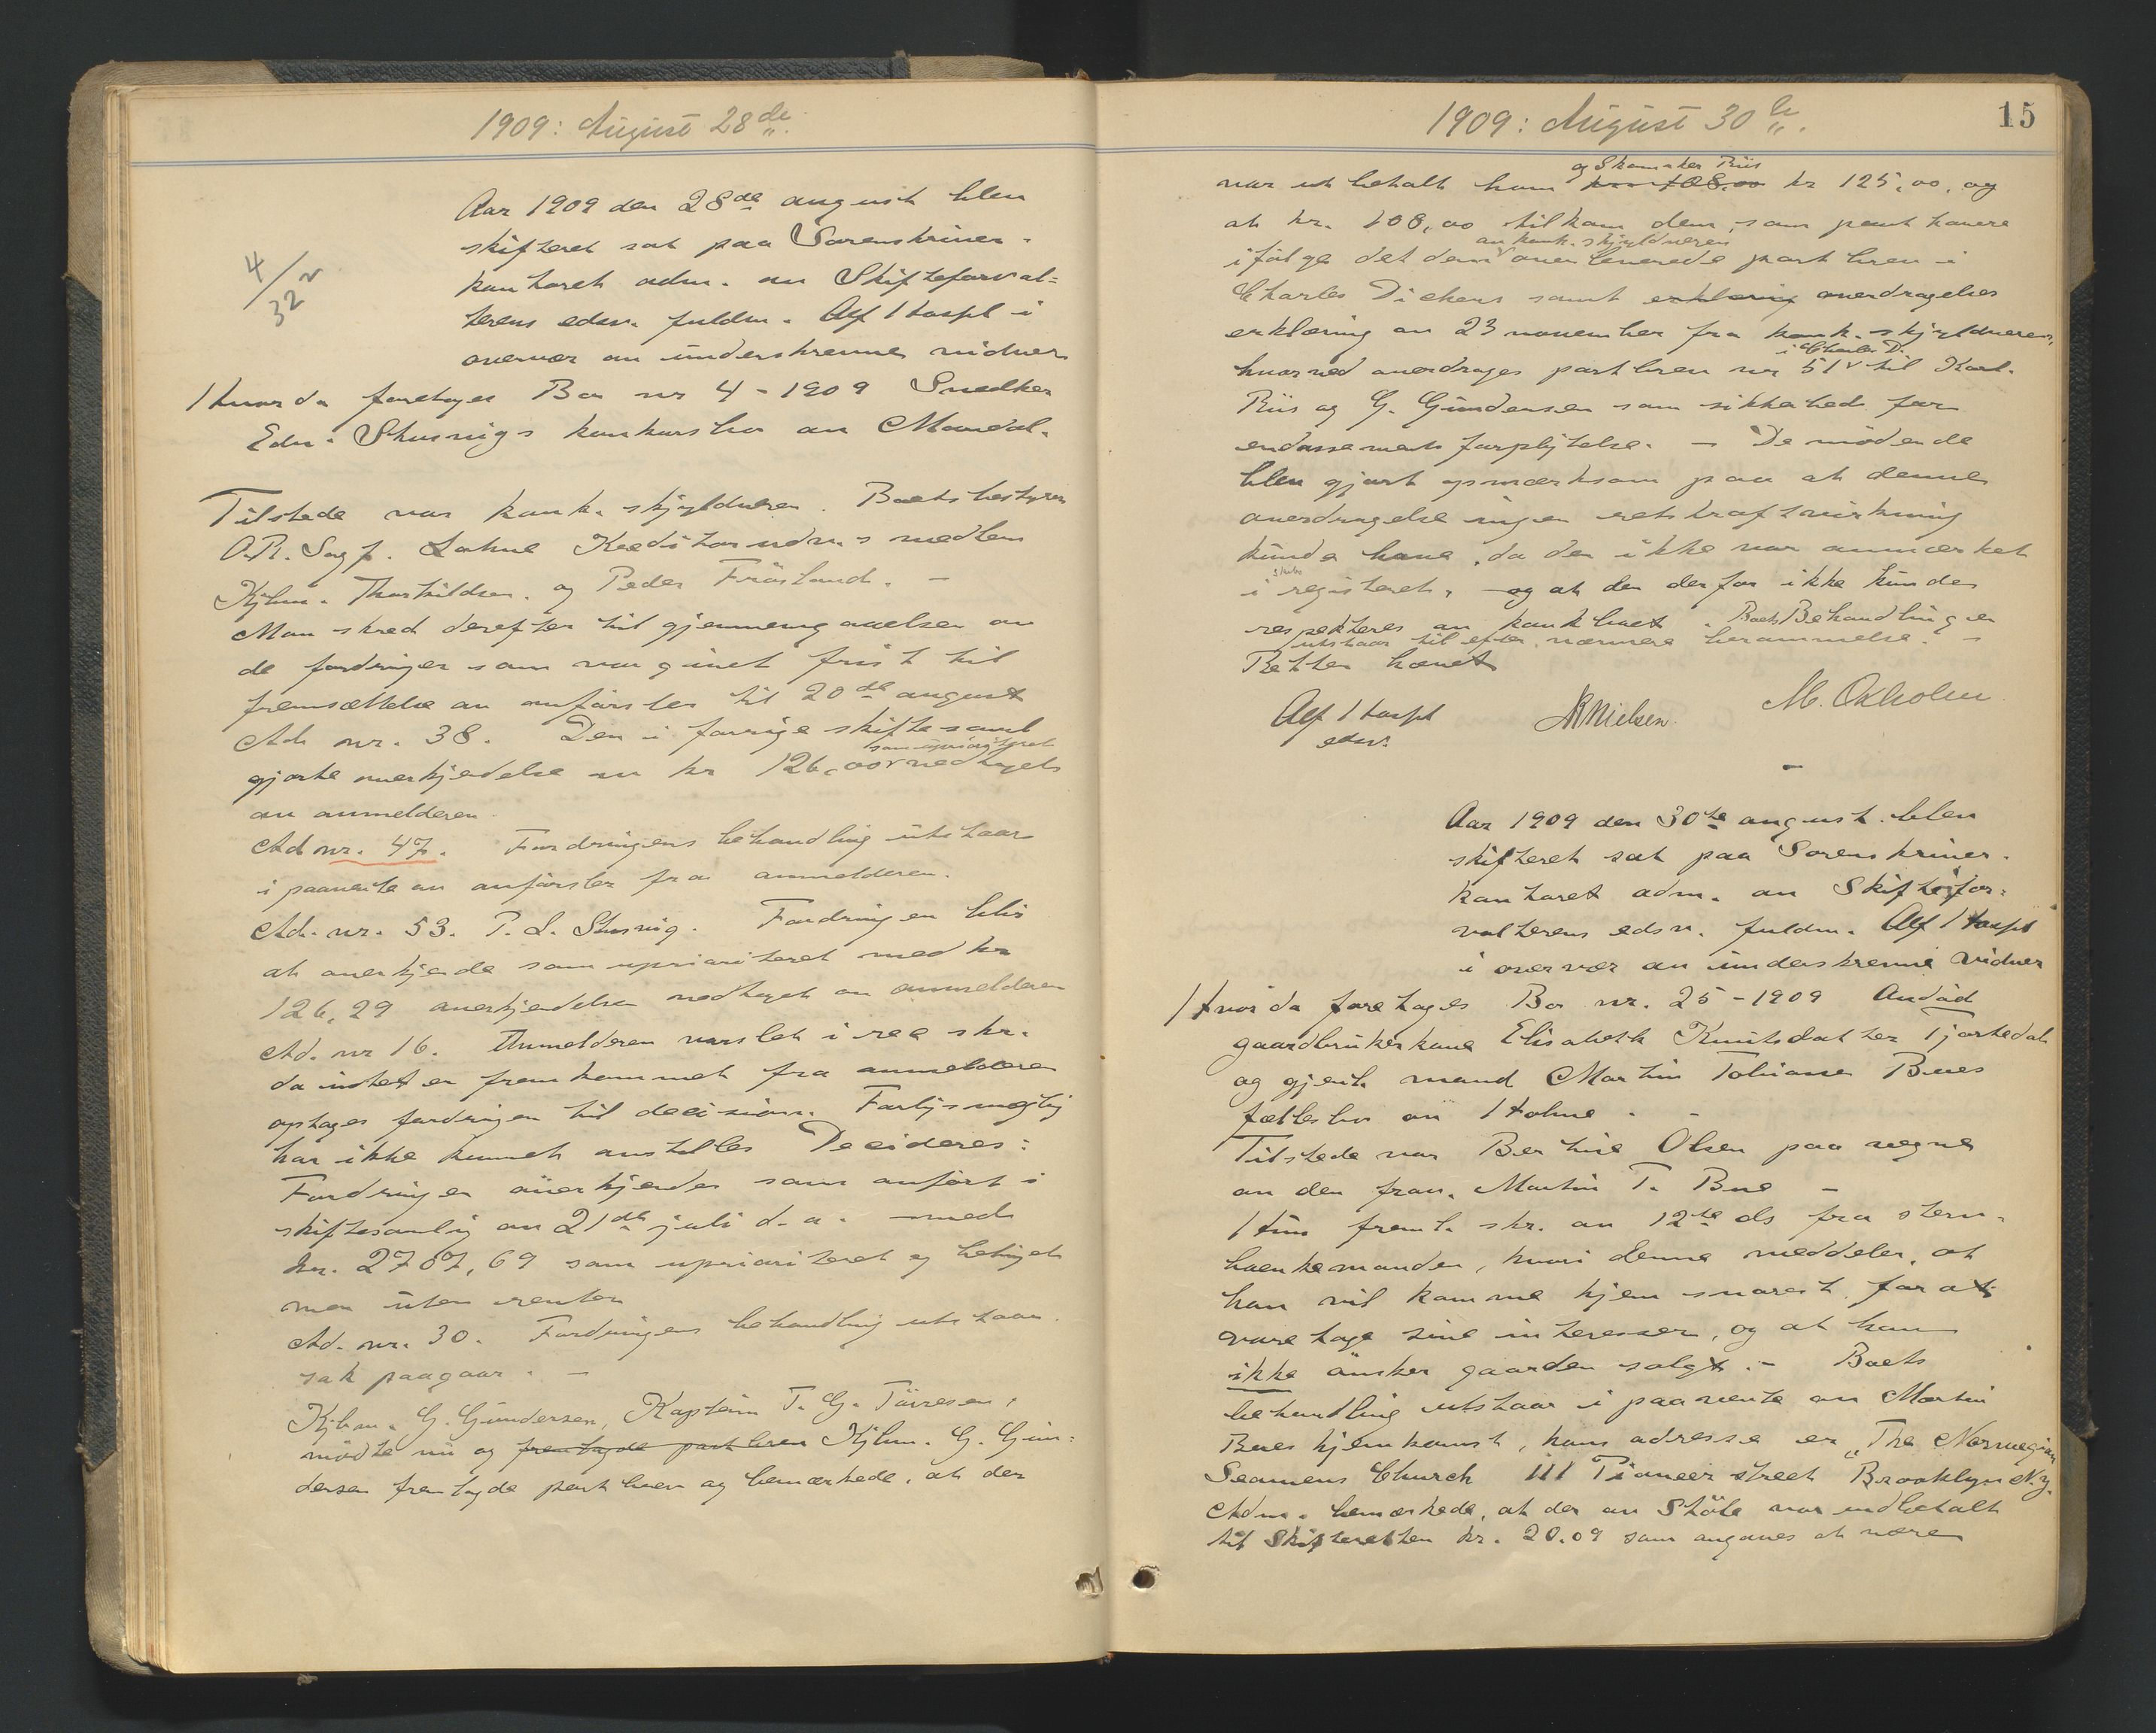 1909: August 28de
Aar 1909 den 28de august blev
skifteret sat paa Sorenskriver-
kontoret adm. av Skifteforval=
terens edsv. fuldm. Alf Haspl i
overvær av underskrevne vidner
4/322
Hvorda foretoges Bo nr 4 - 1909 Snedker
Edv. Stusvigs konkursbo av Mandal.
Tilstede var konk. skyldneren. Boets bestyrer
O.R. Sagf. Lohne Kreditorudv.s medlem
Kjbm. Thorkildsen. og Peder Fröisland. -
Man skred derefter til gjennemgaaelsen av
de fordringer som var givet frist til
fremsættelse av anførsler til 20de august
Ad nr. 38. Den i forrige skiftesaml
gjorte anerkjendelse av kr 126,00 som uprioritert vedtoges
av anmelderen
Ad nr. 47. Fordringens behandling utstaar
i paavente av anførsler fra anmelderen.
Ad. nr. 53. P. L. Stusvig. Fordringen blir
at anerkjende som uprioriteret med kr
126,29 anerkjendelsen vedtaget av anmelderen
Ad. nr 16. Anmelderen varslet i rec skr.
da intet er fremkommet fra anmelderen
optages fordringen til decision. Forligsmægling
har ikke kunnet anstilles Decideres:
Fordringen anerkjendes som anført i
skiftesamlig av 21de juli d. a. med
kr. 2787,69 som uprioriteret og betinget
men uten renter
Ad. nr. 30. Fordringens behandling utstaar.
sak paagaar. -
Kjbm. G. Gundersen, Kaptein T. G. Törresen,
mødte nu og fremlagde partbrev Kjbm. G. Gun=
dersen fremlagde partbrev og bemærkede, at der
1909: August 30te
15
var ut betalt ham og Skomaker Riis kr 108,00 kr 125,00, og
at kr. 108,00 tilkom dem, som pant havere
ifølge det dem av konk. skyldneren overleverede partbrev i
Charles Dickens samt erklæring overdragelses
erklæring av 23 november fra konk. skyldneren,
hvorved overdrages partbrev nr 51 i Charles D. til Karl.
Riis og G. Gundersen som sikkerhed for
endossements forpligtelse. - De mødende
blev gjort opmærksom paa at denne
overdragelse ingen retskraftvirkning
kunde have, da den ikke var anmerket
i skibsregisteret, og at den derfor ikke kunde
respekteres av konkboet. Boets Behandlingen
utstaar til efter nærmere berammelse. -
Retten hævet
Alf Haspl
edsv.
A Nielsen.
M. Oxholm
Aar 1909 den 30te august blev
skifteret sat paa Sorenskriver-
kontoret adm. av Skiftefor=
valterens edsv. fuldm. Alf Haspl
i overvær av underskrevne vidner
Hvorda foretoges Bo nr. 25 - 1909 Avdöd
gaardbrukerkone Elisabeth Knutsdatter Tjortedal
og gjenl. mand Martin Tobiassen Bues
fællesbo av Holme. -
Tilstede var Bertine Olsen paa vegne
av den frav. Martin T. Bue -
Hun freml. skr. av 12te ds fra sterv-
boenkemanden, hvori denne meddeler, at
han vil komme hjem snarest for at
varetage sine interesser, og at han
ikke ønsker gaarden solgt. - Boets
behandling utstaar i paavente av Martin
Bues hjemkomst, hans adresse er „The Norwegian
Seamens Church 111 Pioneer street Brooklyn N.y.
Adm. bemærkede, at der av Støle var indbetalt
til Skifteretten kr. 20.09 som angaves at være